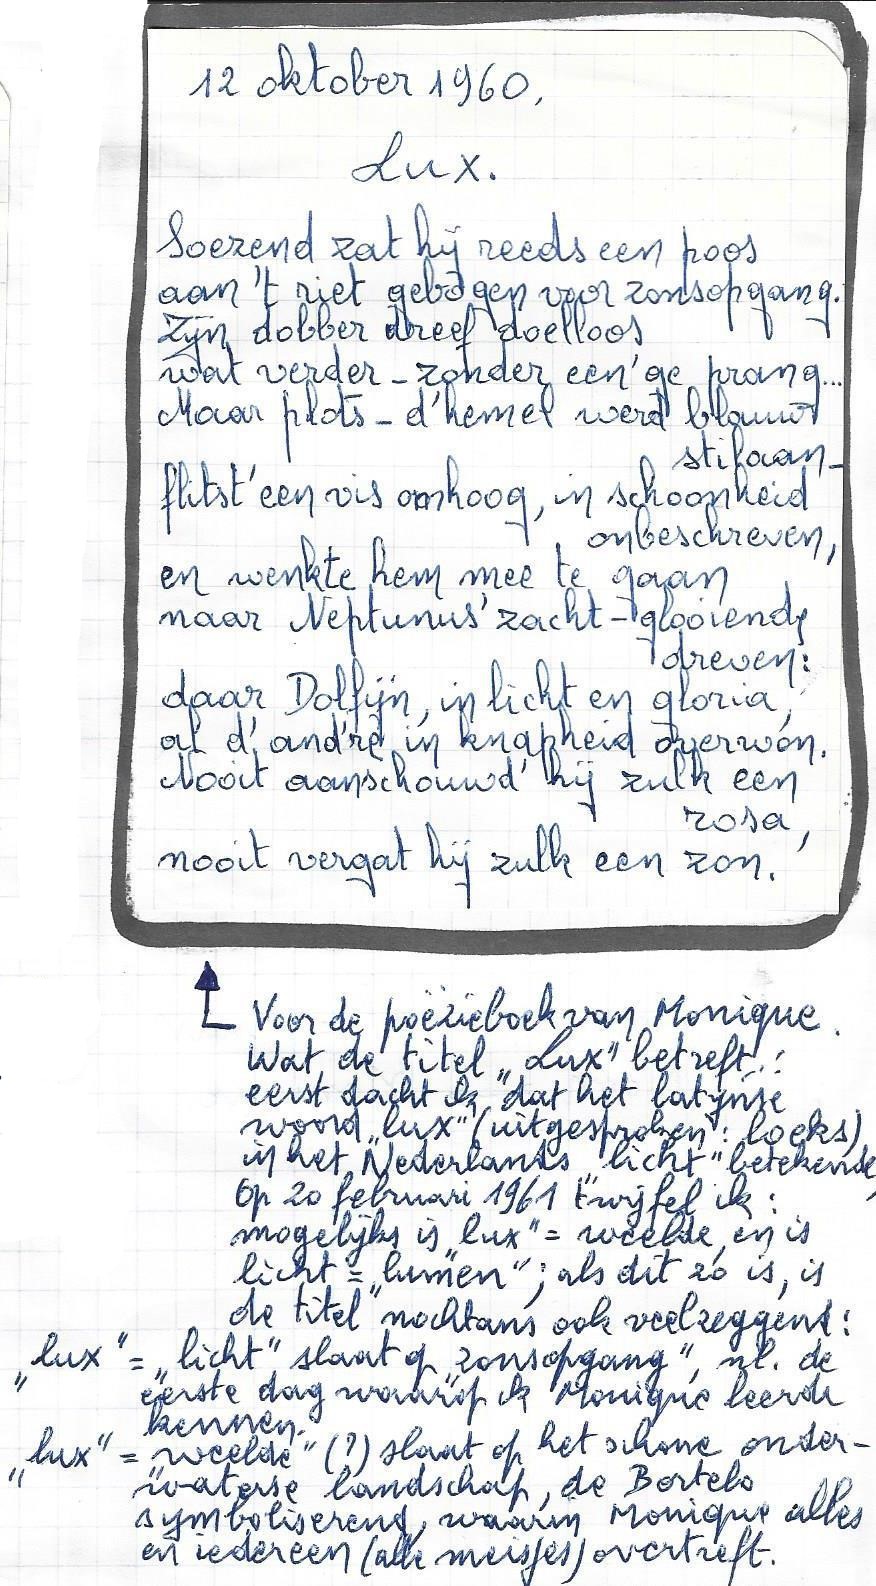 12 oktober 1960.
Lux.
Soezend zat hij reeds een poos
aan 't riet gebogen voor zonsopgang.
Zijn dobber dreef doelloos
wat verder - zonder een'ge prang...
Maar plots - d'hemel werd blauw
stilaan -
flitst' een vis omhoog, in schoonheid
onbeschreven,
en wenkte hem mee te gaan
naar Neptunus' zacht-glooiende
dreven:
daar Dolfijn, in licht en gloria,
al d' and're in knapheid overwon.
Nooit aanschouwd' hij zulk een
rosa,
nooit vergat hij zulk een zon.
Voor de poëzieboek van Monique.
Wat de titel „Lux" betreft :
eerst dacht ik dat het latijnse
woord „lux" (uitgesproken : loeks)
in het Nederlands „licht" betekende,
Op 20 februari 1961 twijfel ik :
mogelijks is „lux" = weelde, en is
licht = „lumen" ; als dit zo is, is
de titel nochtans ook veelzeggend :
„lux" = „licht" slaat op „zonsopgang", nl. de
eerste dag waarop ik Monique leerde
kennen.
„lux" = „weelde" (?) slaat op het schone onder-
waterse landschap, de Bortelo
symboliserend, waarin Monique alles
en iedereen (alle meisjes) overtreft.